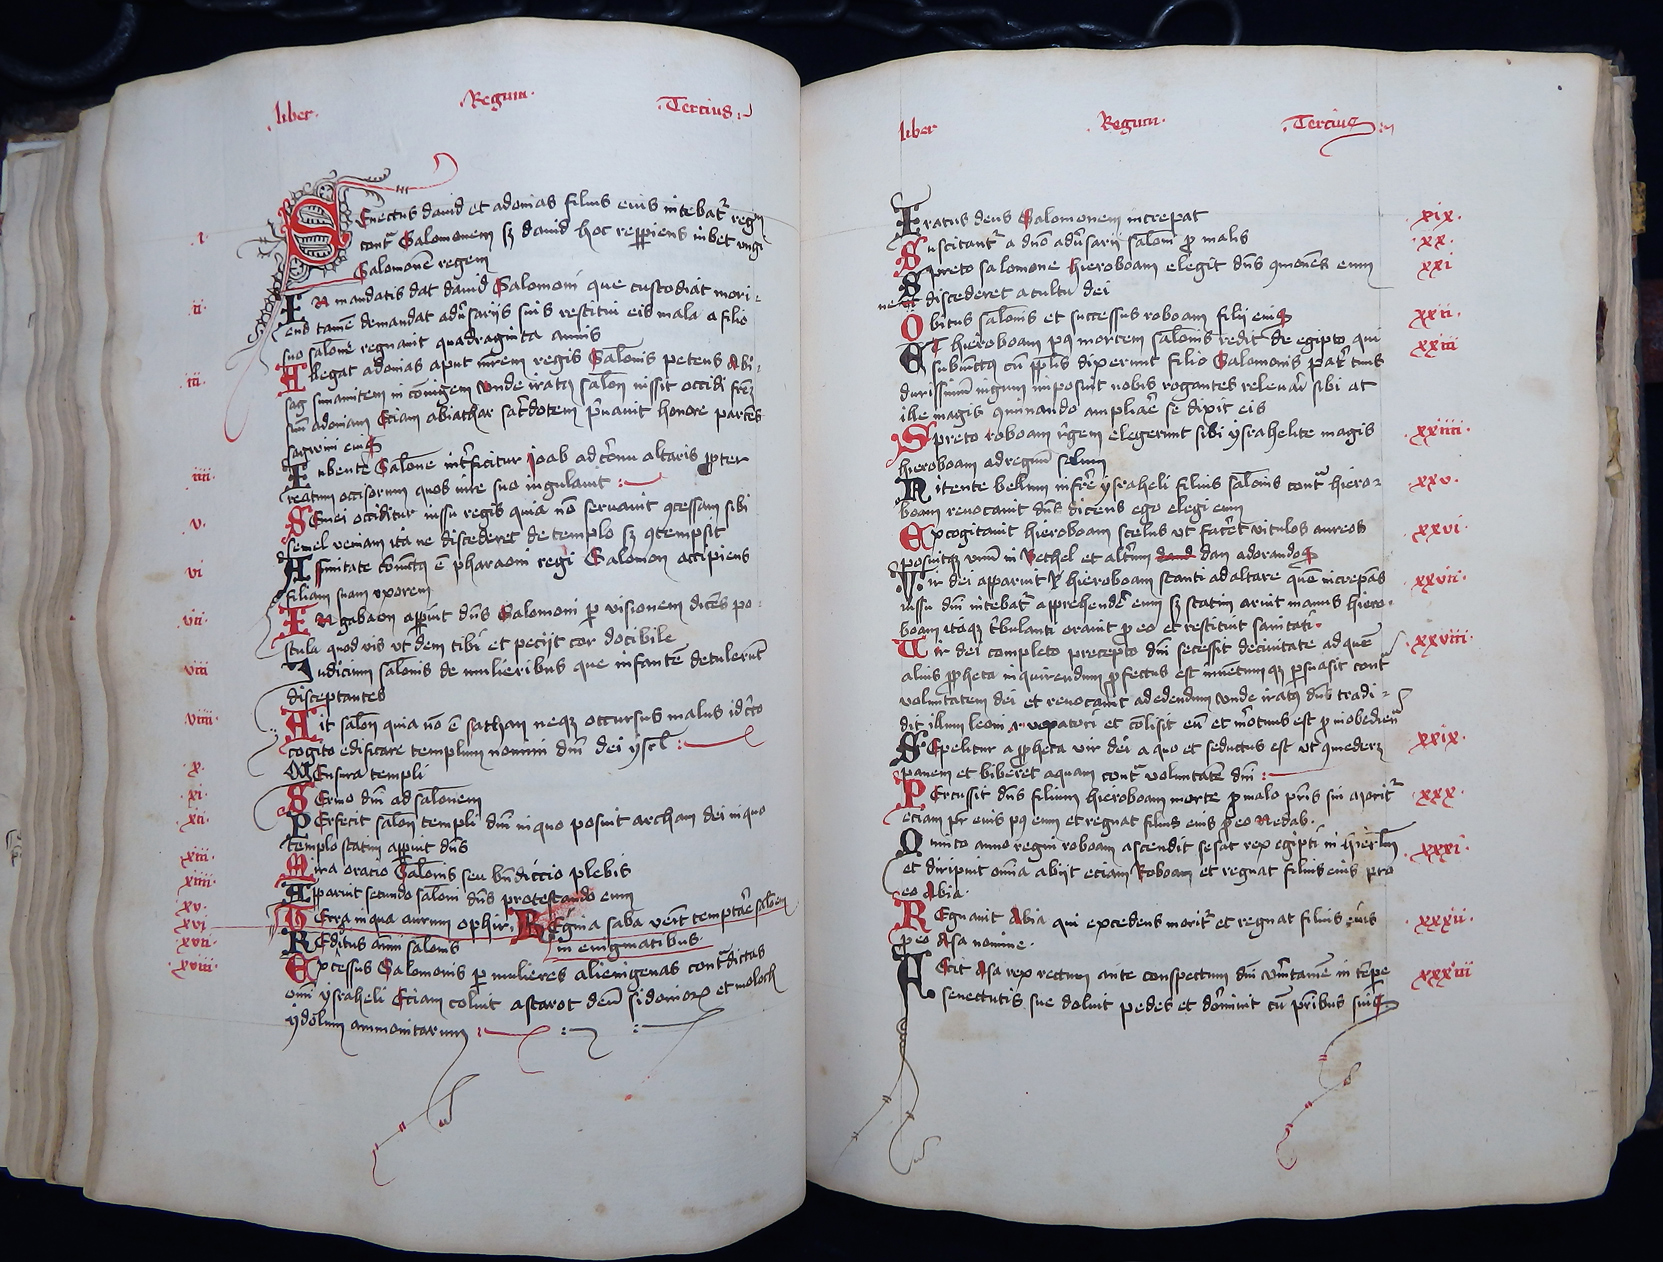 liber Regum Tercius
i
Senectus dauid et adonias filius eius nitebat᷑ regn̄
cont᷑ Salomonem sꝫ dauid hoc respiciens iubet vngi
Salomonē regem
ii
IN mandatis dat dauid Salomoni que custodiat mori:
ens tamē demandat adūsarijs suis restitui eis mala a filio
suo salōne regnauit quadraginta annis
iii
legat adonias aput mr̄em regis Salōis petens Abi:
sag sunamitem in coniugem vnde iratꝰ salōn iussit occidi frēꝫ
suū adoniam Eciam abiathar sac̄dotem p̄uauit honore partēs
iiii
Iubente Salōne int̄ficitur ioab ad cornu altaris ꝓpter
reatum occisorum quos iure suo iugulauit :
v
SEmei occiditur iussu regis quia nō seruauit ꝯcessam sibi
semel veniam ita ne discederet de templo sꝫ ꝯtempsit
vi
Affinitate coniūctꝰ ē pharaoni regi Salomon accipiens
filiam suam vxorem
vii
IN gabaon appuit dn̄s Salomoni ꝑ visionem dicēs po:
stula quod vis vt dem tibi et pecijt cor docibile
viii
Iudicium salōis de mulieribus que infantē detulerūt
disceptantes
viiii
Ait salōn quia nō ē sathan neqꝫ occursus malus idc̄co
cogito edificare templum nomini dn̄i dei ysrl :
x
MEnsura templi
xi
SErmo dn̄i ad salōnem
xii
PErfecit salōn templū dn̄i in quo posuit archam dei in quo
templo statim appuit dn̄s
xiii
Mira oracio Salōis seu bn̄diccio plebis
xiiii
Apparuit secundo salōni dn̄s protestando eum
xv
TErra in qua aurum ophir. REgina saba venit temptāe salōem
xvi
in enigmatibus.
xvii
REditus anni salōis
xviii
Excessus Salomonis ꝑ mulieres alienigenas cont᷑dictas
omni ysraheli Eciam coluit astarot deū sidoniorꝫ et moloch
ydolum ammonitarum :
liber Regum Tercius
Iratus deus Salomonem increpat xix.
Suscitant᷑ a dn̄o adūsarij salōni ꝓ malis xx.
Spreto salomone hieroboam elegit dn̄s qmonēs eum xxi
ne discederet a cultu dei
Obitus salōis et successus roboam filij eiꝰ xxii.
ET hieroboam pꝰ mortem salōis redit de egipto qui xxiii
subiūctꝰ cū pp̄lis dixerunt filio Salomonis pat᷑ tuus
durissimū iugum imposuit nobis rogantes releuari sibi at
ille magis quinando ampliāe se dixit eis
Spreto roboam rēgem elegerunt sibi ysrahelite magis xxiiii.
hieroboam ad regnū solum
Nitente bellum inferre ysraheli filius salōis cont᷑ hiero: xxv.
boam reuocauit dn̄s dicens ego elegi eum
Excogitauit hieroboam scelus vt facēt vitulos aureos xxvi
posuitqꝫ vnū in Bethel et altm̄ dan adorandos
Vir dei apparuit hieroboam stanti ad altare quē increpās xxvii.
iussu dn̄i nitebat᷑ apprehendē eum sꝫ statim aruit manus hiero.
boam itaqꝫ t̄bulanti orauit ꝓ eo et restituit sanitati.
Vir dei completo precepto dn̄i secessit de ciuitate ad quē xxviii.
alius ꝓpheta inquirendum ꝓfectus est inuētumqꝫ ꝑsuasit cont᷑
voluntatem dei et reuocauit ad edendum vnde iratꝰ dn̄s tradi:
dit illum leoni et colisit eū et m̄tuus est ꝓ inobedien̄
SEpelitur a ꝓpheta vir dei a quo et seductus est vt ꝯmederꝫ xxix.
panem et biberet aquam cont᷑ voluntatē dn̄i :
PErcussit dn̄s filium hieroboam morte ꝓ malo pr̄is sui morit᷑ xxx.
eciam pr̄ eius pꝰ eum et regnat filius eius ꝓ eo Nedab.
Quinto anno regni roboam ascendit sesac rex egipti in hierl̄m xxxi.
et diripuit omīa abijt eciam Roboam et regnat filius eius pro
eo Abia.
REgnauit Abia qui excedens morit᷑ et regnat filius eius xxxii.
ꝓ eo Asa nomine.
FEcit Asa rex rectum ante conspectum dn̄i vm̄tamē in tēpe xxxiii
senectutis sue doluit pedes et dormiuit cū pr̄ibus suis